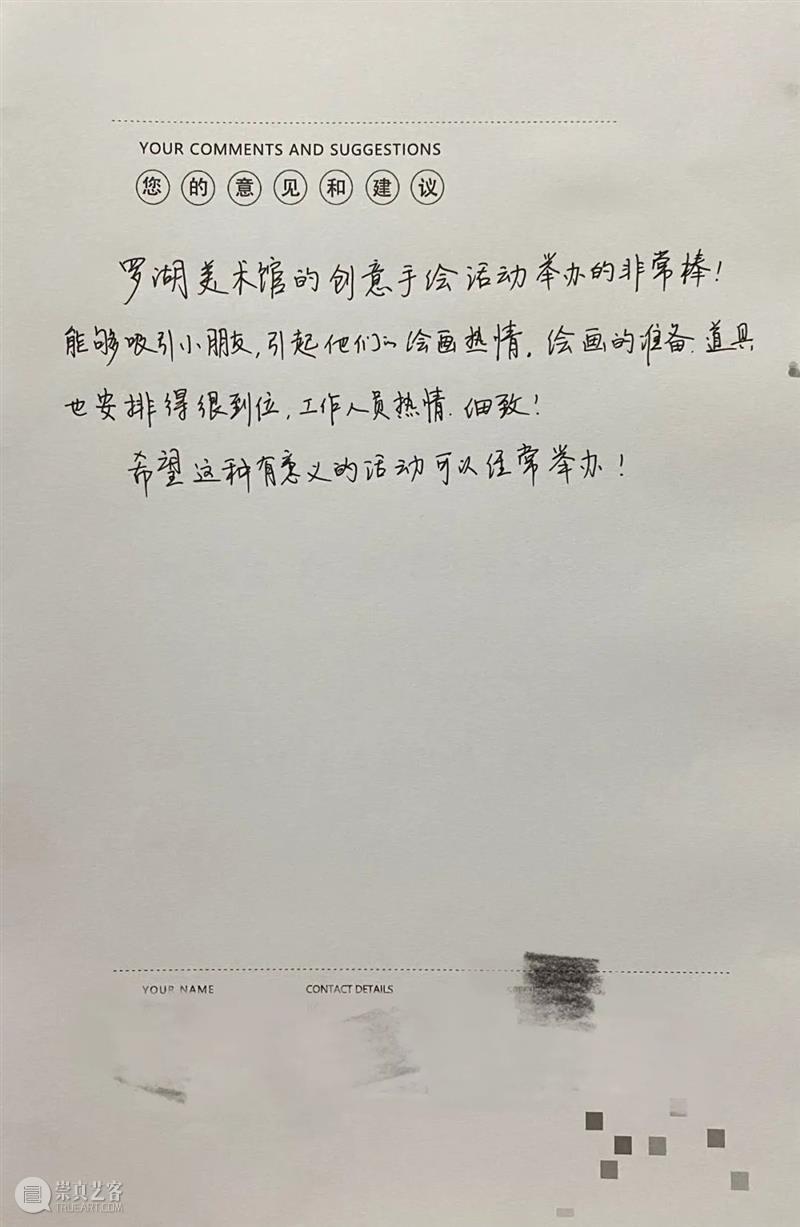 YOUR COMMENTS AND SUGGESTIONS
您的意见和建议
罗湖美术馆的创意手绘活动举办的非常棒!
能够吸引小朋友,引起他们的绘画热情。绘画的准备、道具
也安排得很到位,工作人员热情、细致!
希望这种有意义的活动可以经常举办!
YOUR NAME CONTACT DETAILS
崇真艺客
TRUEART.COM